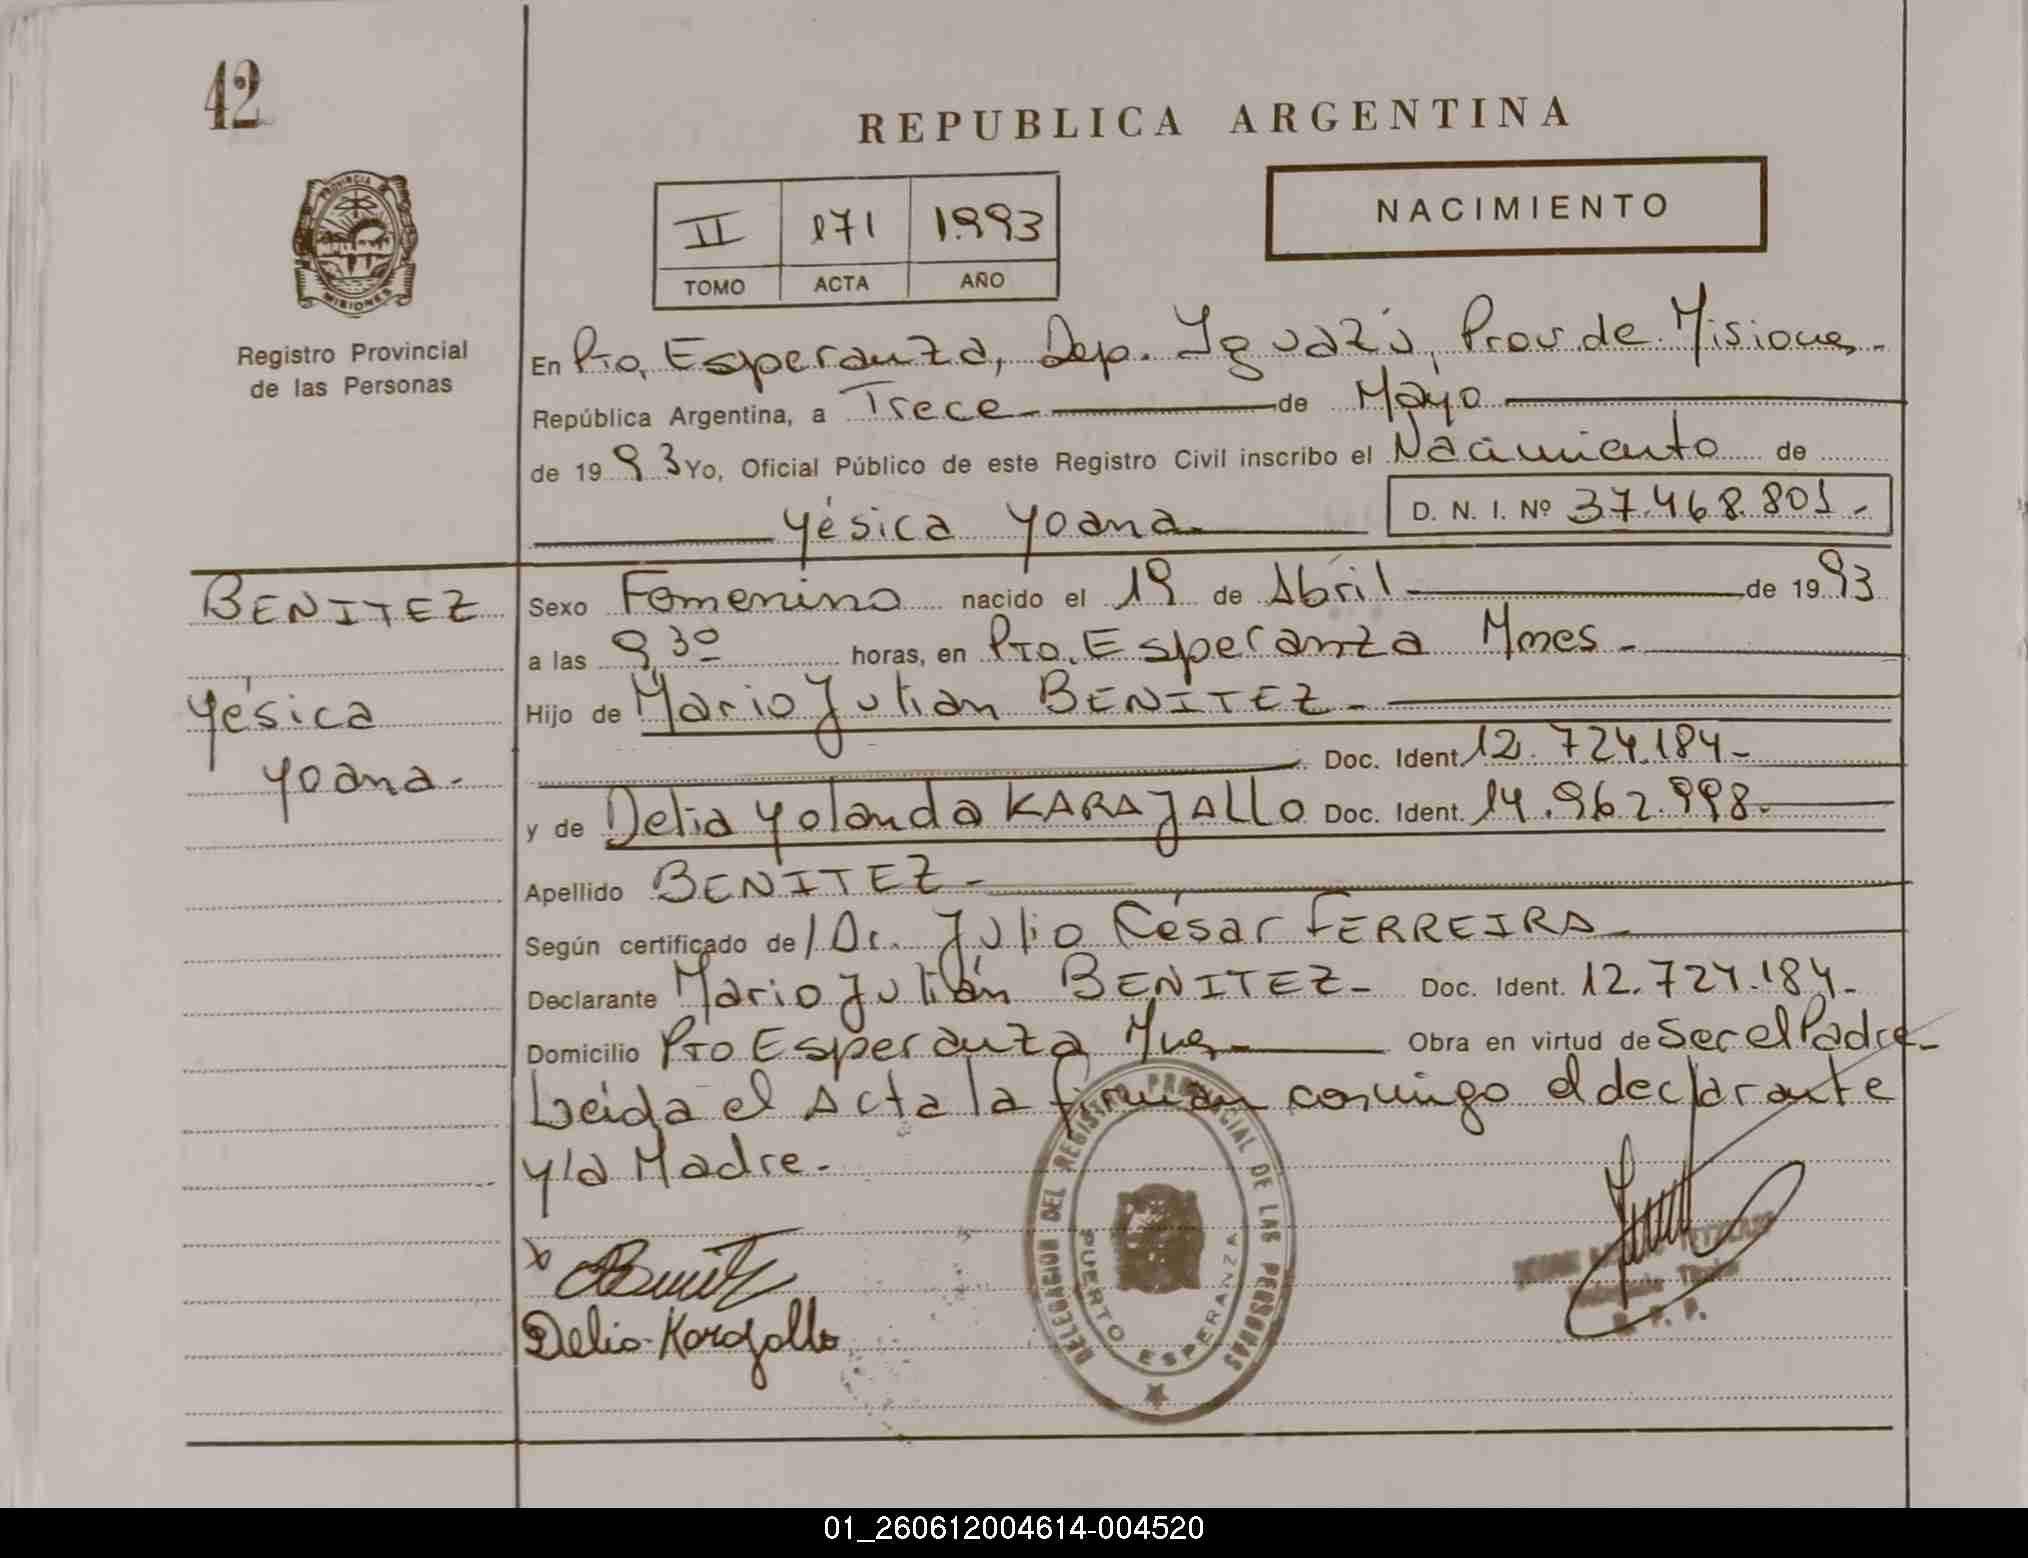 42
REPUBLICA ARGENTINA
PROVINCIA DE
MISIONES
Registro Provincial
de las Personas
II 171 1993
TOMO ACTA AÑO
NACIMIENTO
En Pto. Esperanza, Dep. Iguazú, Prov. de Misiones.-
República Argentina, a Trece de Mayo
de 1993 Yo, Oficial Público de este Registro Civil inscribo el Nacimiento de
Yésica Yoana.
D. N. I. Nº 37.468.801.-
BENITEZ
Yésica
Yoana.-
Sexo Femenino nacido el 19 de Abril de 1993
a las 9,30 horas, en Pto. Esperanza Mnes.-
Hijo de Mario Julian BENITEZ.-
Doc. Ident. 12.724.184-
y de Delia Yolanda KARAJALLO Doc. Ident. 14.962.998.
Apellido BENITEZ-
Según certificado de/ Dr. Julio César FERREIRA-
Declarante Mario Julián BENITEZ- Doc. Ident. 12.724.184.-
Domicilio Pto Esperanza Mnes- Obra en virtud de Ser el Padre-
Leída el Acta la firman conmigo el declarante
y la Madre.-
DELEGACION DEL REGISTRO PROVINCIAL DE LAS PERSONAS
PUERTO ESPERANZA
x
Delia Karajallo
R. P. P.
01_260612004614-004520